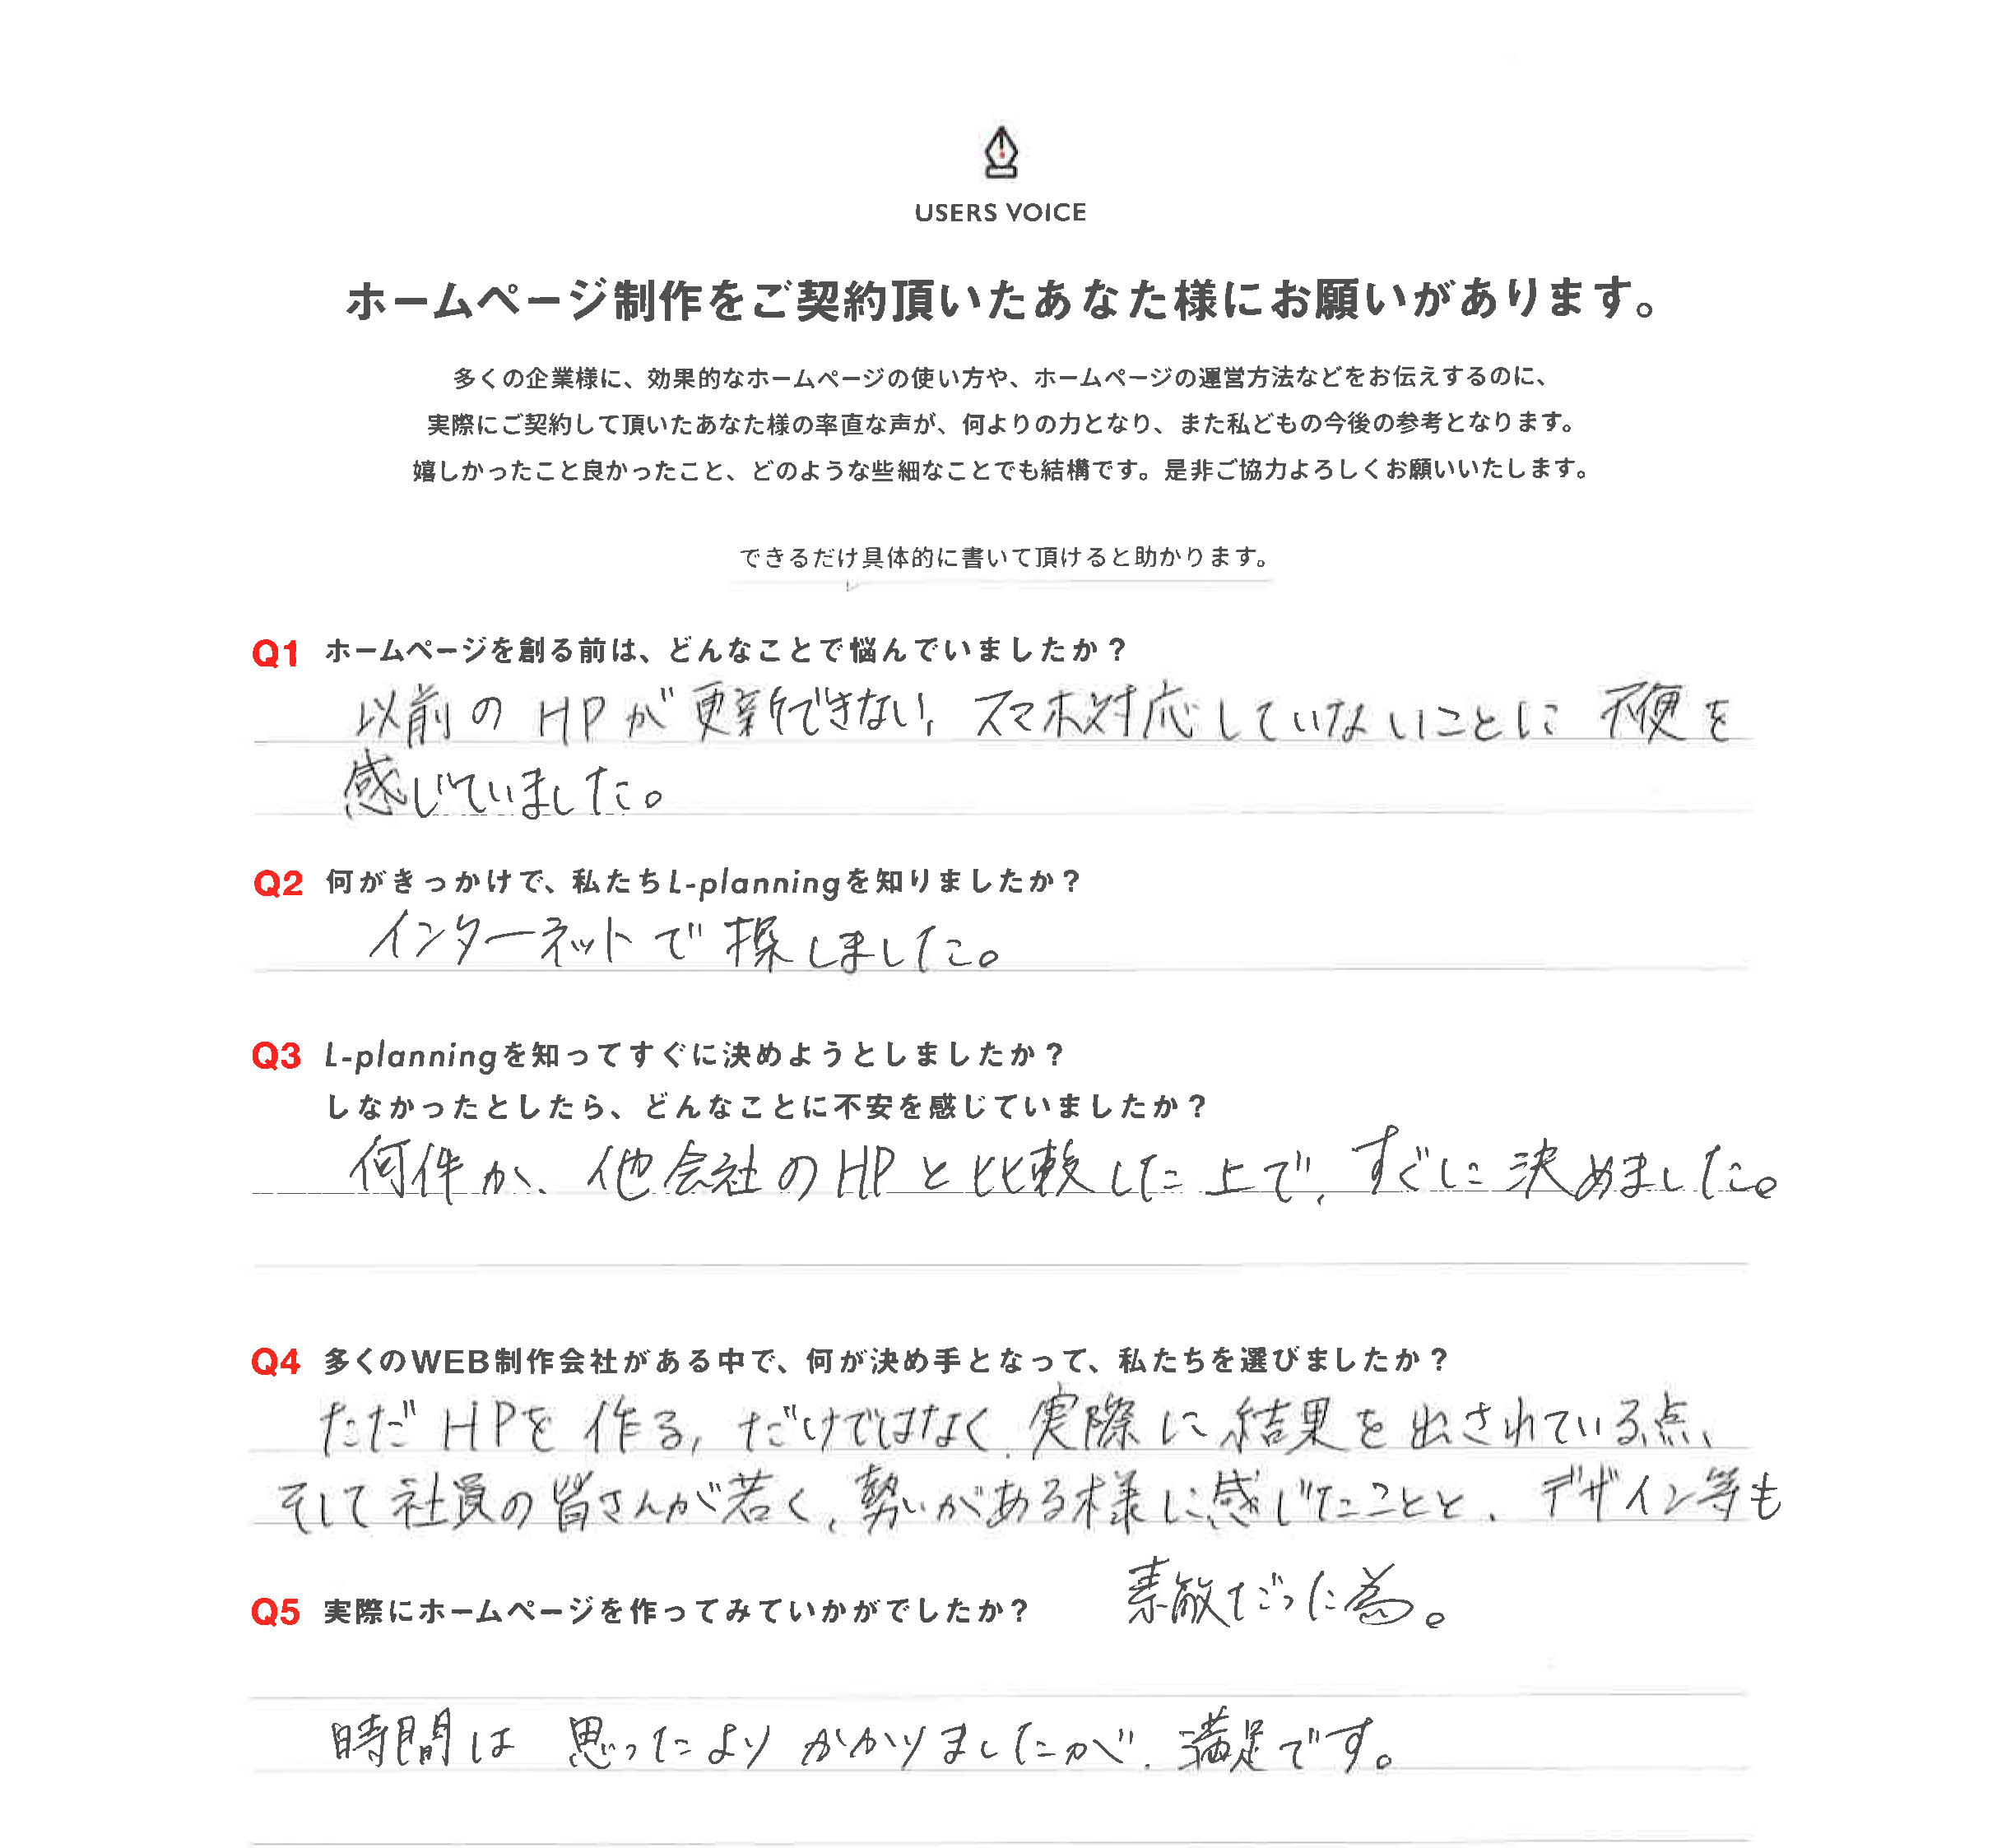 USERS VOICE
ホームページ制作をご契約頂いたあなた様にお願いがあります。
多くの企業様に、効果的なホームページの使い方や、ホームページの運営方法などをお伝えするのに、
実際にご契約して頂いたあなた様の率直な声が、何よりの力となり、また私どもの今後の参考となります。
嬉しかったこと良かったこと、どのような些細なことでも結構です。是非ご協力よろしくお願いいたします。
できるだけ具体的に書いて頂けると助かります。
Q1 ホームページを創る前は、どんなことで悩んでいましたか？
以前の HPが更新できない、スマホ対応していないことに 不便を
感じていました。
Q2 何がきっかけで、私たちL-planningを知りましたか？
インターネットで 探しました。
Q3 L-planningを知ってすぐに決めようとしましたか？
しなかったとしたら、どんなことに不安を感じていましたか？
何件か、他会社のHPと比較した上で、すぐに決めました。
Q4 多くのWEB制作会社がある中で、何が決め手となって、私たちを選びましたか？
ただHPを作る、だけではなく、実際に結果を出されている点、
そして社員の皆さんが若く、勢いがある様に感じたことと、デザイン等も
素敵だった為。
Q5 実際にホームページを作ってみていかがでしたか？
時間は 思ったよりかかりましたが、満足です。